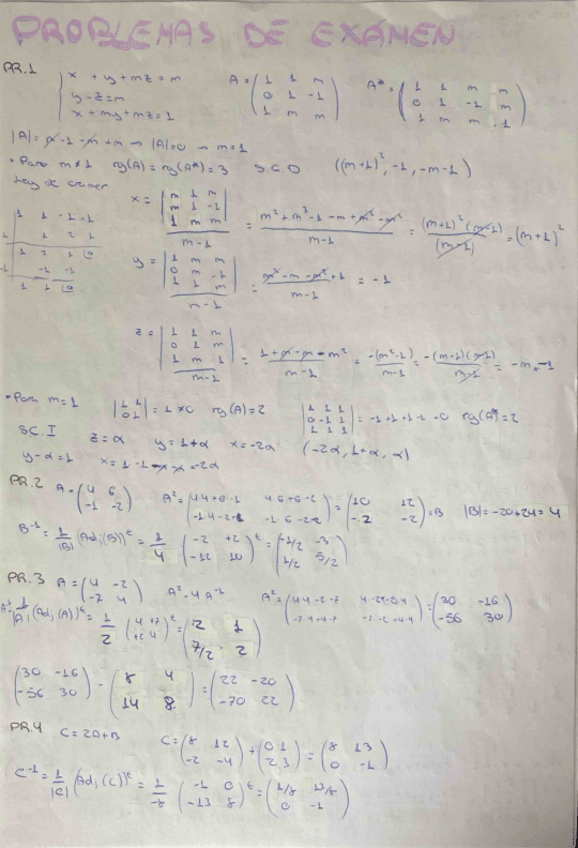 PROBLEMAS DE EXÁMEN
PR.1
x + y + mz = m
y - z = m
x + my + mz = 1
A = (1 1 m / 0 1 -1 / 1 m m)
A* = (1 1 m m / 0 1 -1 m / 1 m m 1)
|A| = m - 1 - m + m → |A| = 0 → m = 1
• Para m ≠ 1 rg(A) = rg(A*) = 3 S.C.D ((m+1)², -1, -m-1)
Ley de cramer
x = |m 1 m / m 1 -1 / 1 m m| / m-1 = m² + m³ - 1 - m + m² - m² / m-1 = (m+1)² (m-1) / (m-1) = (m+1)²
1 1 -1 -1
1 1 2 1
1 2 1 0
-1 -1 -1
1 1 0
y = |1 m m / 0 m -1 / 1 1 m| / m-1 = m² - m - m² + 1 / m-1 = -1
z = |1 1 m / 0 1 m / 1 m 1| / m-1 = 1 + m - m - m² / m-1 = -(m²-1) / m-1 = -(m+1)(m-1) / m-1 = -m-1
• Para m = 1 |1 1 / 0 1| = 1 ≠ 0 rg(A) = 2 |1 1 1 / 0 -1 1 / 1 1 1| = -1+1+1-1 = 0 rg(A*) = 2
S.C.I z = α y = 1+α x = -2α (-2α, 1+α, α)
y - α = 1 x = 1 - 1 - α - α = -2α
PR.2 A = (4 6 / -1 -2) A² = = (10 12 / -2 -2) = B |B| = -20+24 = 4
B⁻¹ = 1/|B| (Adj(B))ᵗ = 1/4 (-2 +2 / -12 10)ᵗ = (-1/2 -3 / 1/2 5/2)
PR.3 A = (4 -2 / -7 4) A² - 4A⁻¹ A² = = (30 -16 / -56 30)
A⁻¹ = 1/|A| (Adj(A))ᵗ = 1/2 (4 +7 / +2 4)ᵗ = (2 1 / 7/2 2)
(30 -16 / -56 30) - (8 4 / 14 8) = (22 -20 / -70 22)
PR.4 C = 2A+B C = (8 12 / -2 -4) + (0 1 / 2 3) = (8 13 / 0 -1)
C⁻¹ = 1/|C| (Adj(C))ᵗ = 1/-8 (-1 0 / -13 8)ᵗ = (1/8 13/8 / 0 -1)